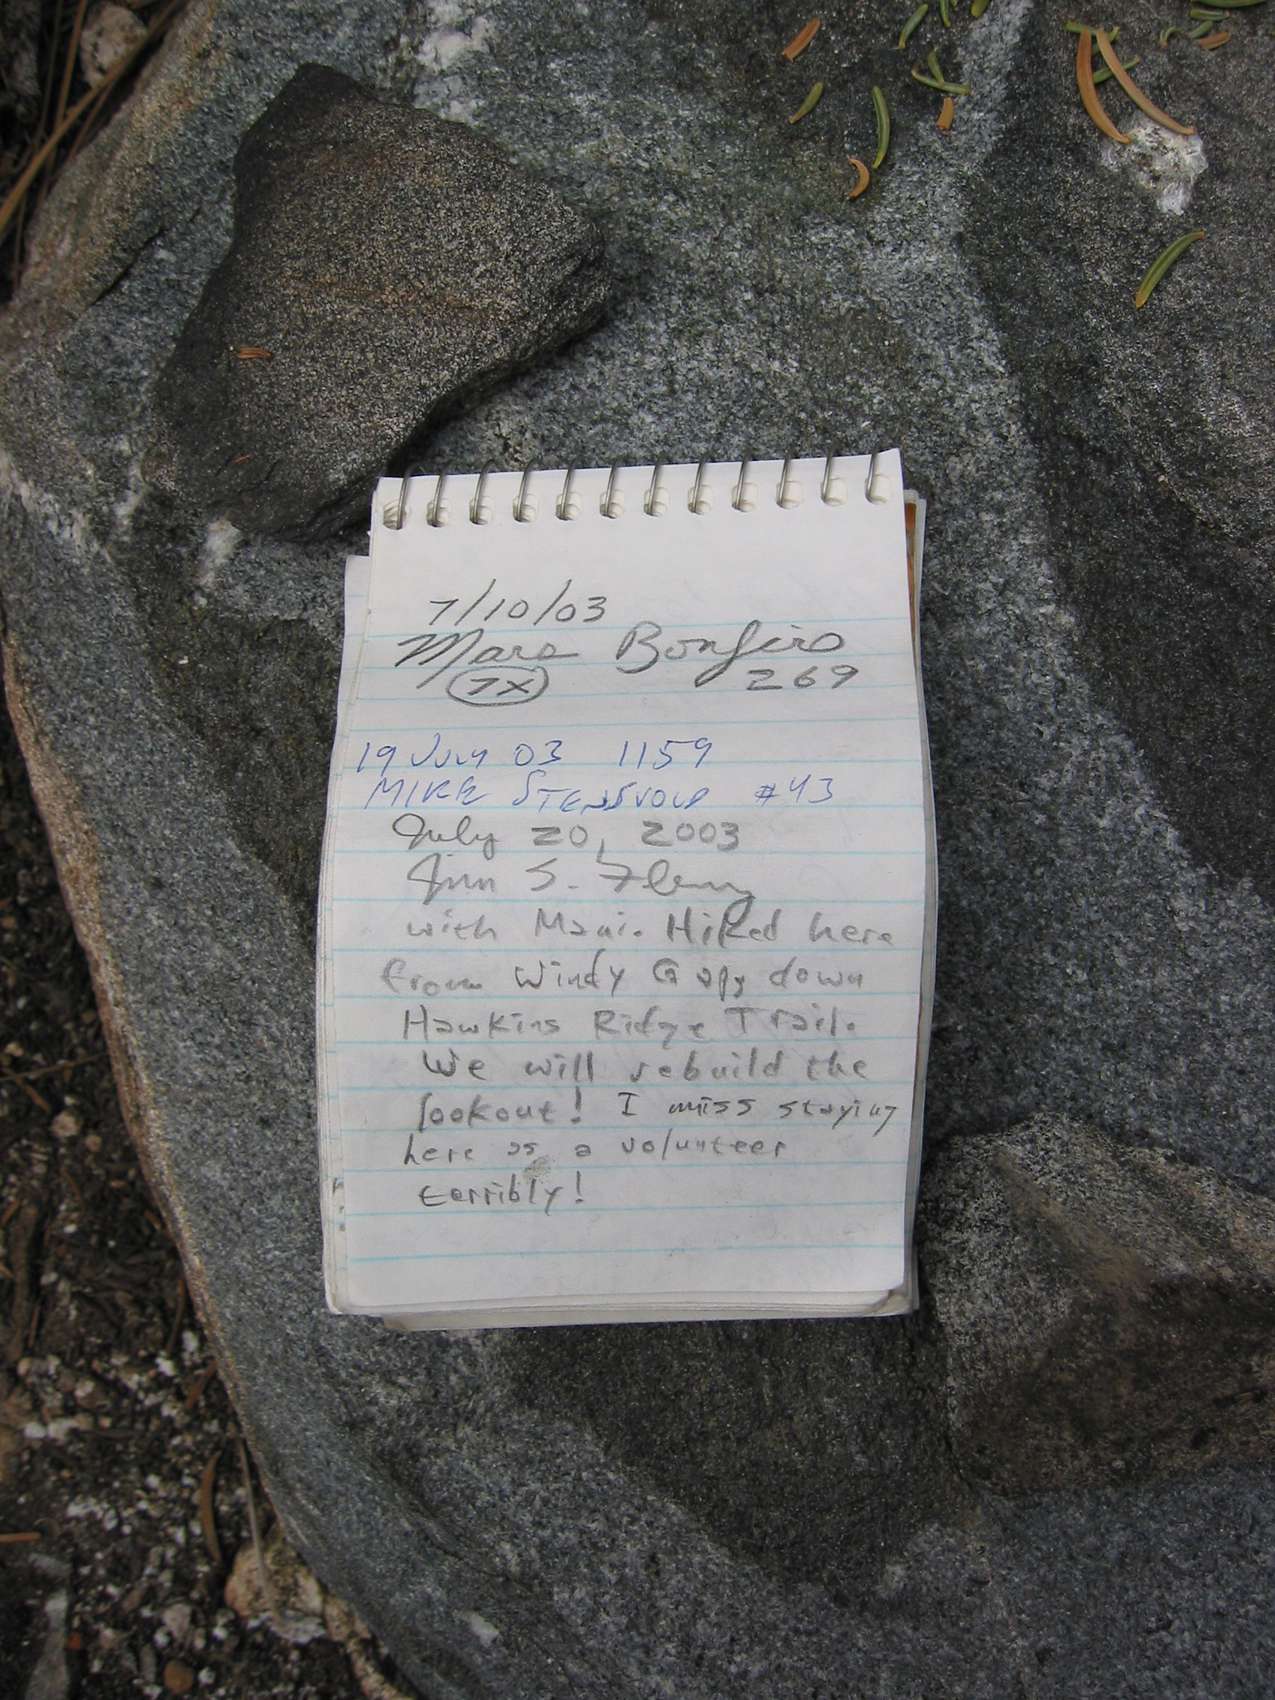 7/10/03
Mars Bonfiro
7X 269
19 July 03 1159
MIKE STENSVOLD #43
July 20, 2003
Jim S. Fleming
with Maui. Hiked here
from Windy Gap, down
Hawkins Ridge Trail.
We will rebuild the
lookout! I miss staying
here as a volunteer
terribly!